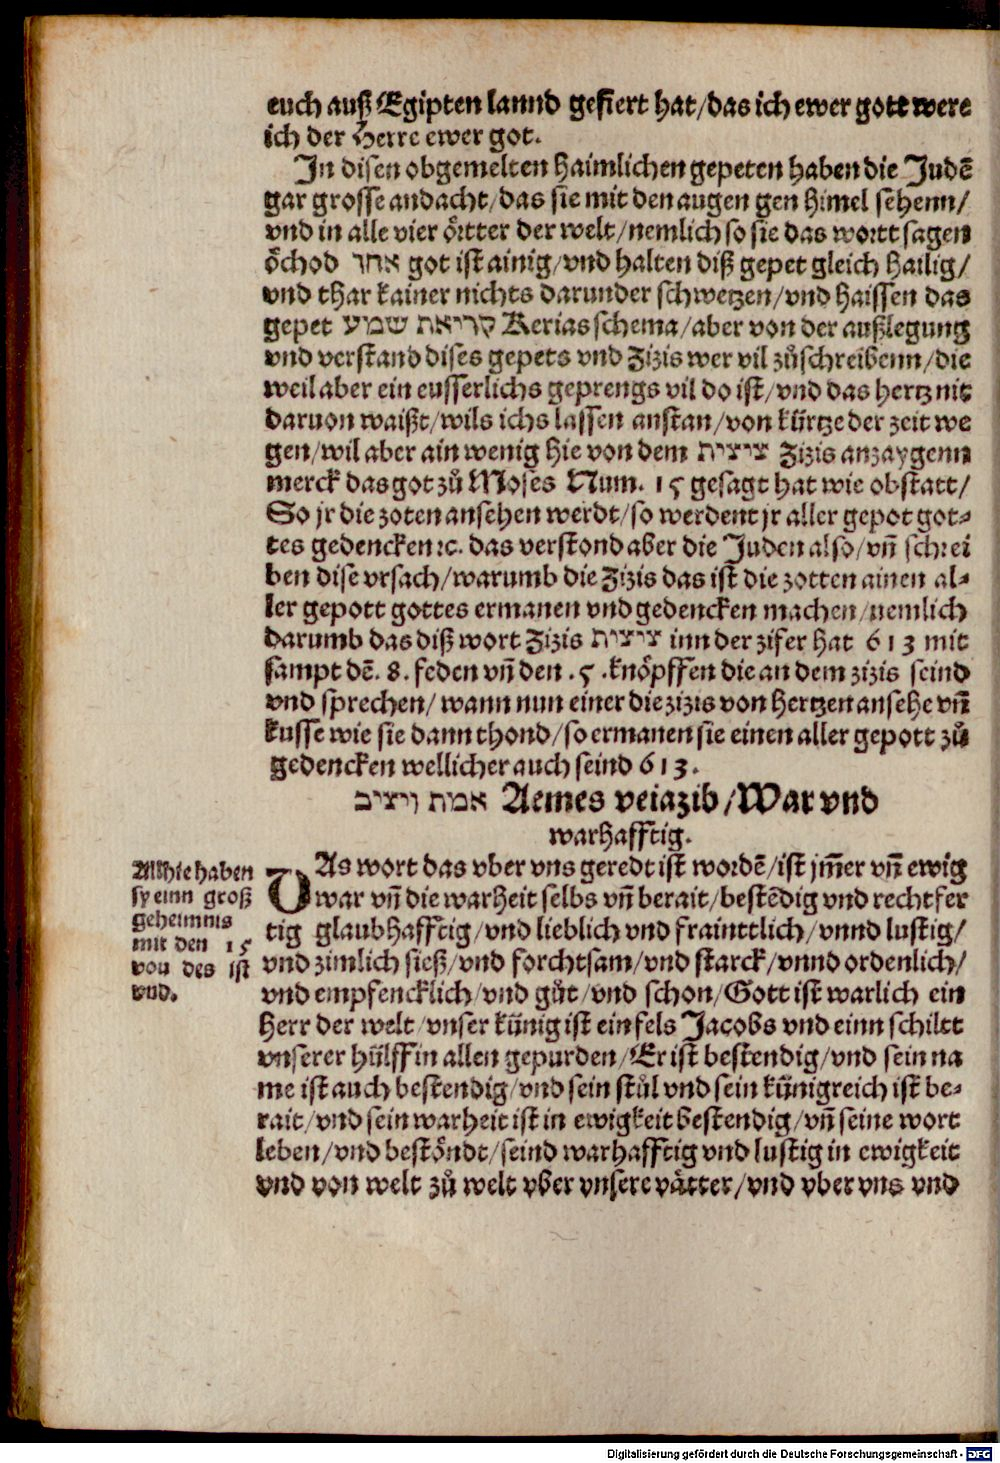 euch auß Egipten lannd gefiert hat/das ich ewer gott were
ich der Herre ewer got.
In disen obgemelten haimlichen gepeten haben die Judẽ
gar grosse andacht/das sie mit den augen gen himel sehenn/
vnd in alle vier oͤrtter der welt/nemlich so sie das wortt sagen
oͤchod אחד got ist ainig/vnd halten diß gepet gleich hailig/
vnd thar kainer nichts darunder schwetzen/vnd haissen das
gepet קריאת שמע Kerias schema/aber von der außlegung
vnd verstand dises gepets vnd Zizis wer vil zůschreibenn/die
weil aber ein eusserlichs geprengs vil do ist/vnd das hertz nit
daruon waißt/wils ichs lassen anstan/von kürtze der zeit we
gen/wil aber ain wenig hie von dem ציצית Zizis anzaygenn
merck das got zů Moses Num. 15 gesagt hat wie obstatt/
So jr die zoten ansehen werdt/so werdent jr aller gepot got⸗
tes gedencken ꝛc. das verstond aber die Juden also/vñ schrei
ben dise vrsach/warumb die Zizis das ist die zotten ainen al⸗
ler gepott gottes ermanen vnd gedencken machen/nemlich
darumb das diß wort Zizis ציצית inn der zifer hat 613 mit
sampt dẽ. 8. feden vñ den .5. knöpffen die an dem zizis seind
vnd sprechen/ wann nun einer die zizis von hertzen ansehe vñ
kusse wie sie dann thond/so ermanen sie einen aller gepott zů
gedencken wellicher auch seind 613.
אמת ויציב Aemes veiazib/War vnd
warhafftig.
DAs wort das vber vns geredt ist wordẽ/ist jm̃er vñ ewig
war vñ die warheit selbs vñ berait/bestẽdig vnd rechtfer
tig glaubhafftig/vnd lieblich vnd frainttlich/vnnd lustig/
vnd zimlich sieß/vnd forchtsam/vnd starck/vnnd ordenlich/
vnd empfencklich/vnd gůt/vnd schon/Gott ist warlich ein
Herr der welt/vnser künig ist ein fels Jacobs vnd einn schiltt
vnserer hülff in allen gepurden/Er ist bestendig/vnd sein na
me ist auch bestendig/vnd sein stůl vnd sein künigreich ist be⸗
rait/vnd sein warheit ist in ewigkeit bestendig/vñ seine wort
leben/vnd bestöndt/seind warhafftig vnd lustig in ewigkeit
vnd von welt zů welt vber vnsere vätter/vnd vber vns vnd
Allhie haben
sy einn groß
geheimnis
mit den 15
von des ist
vnd.
Digitalisierung gefördert durch die Deutsche Forschungsgemeinschaft - DFG